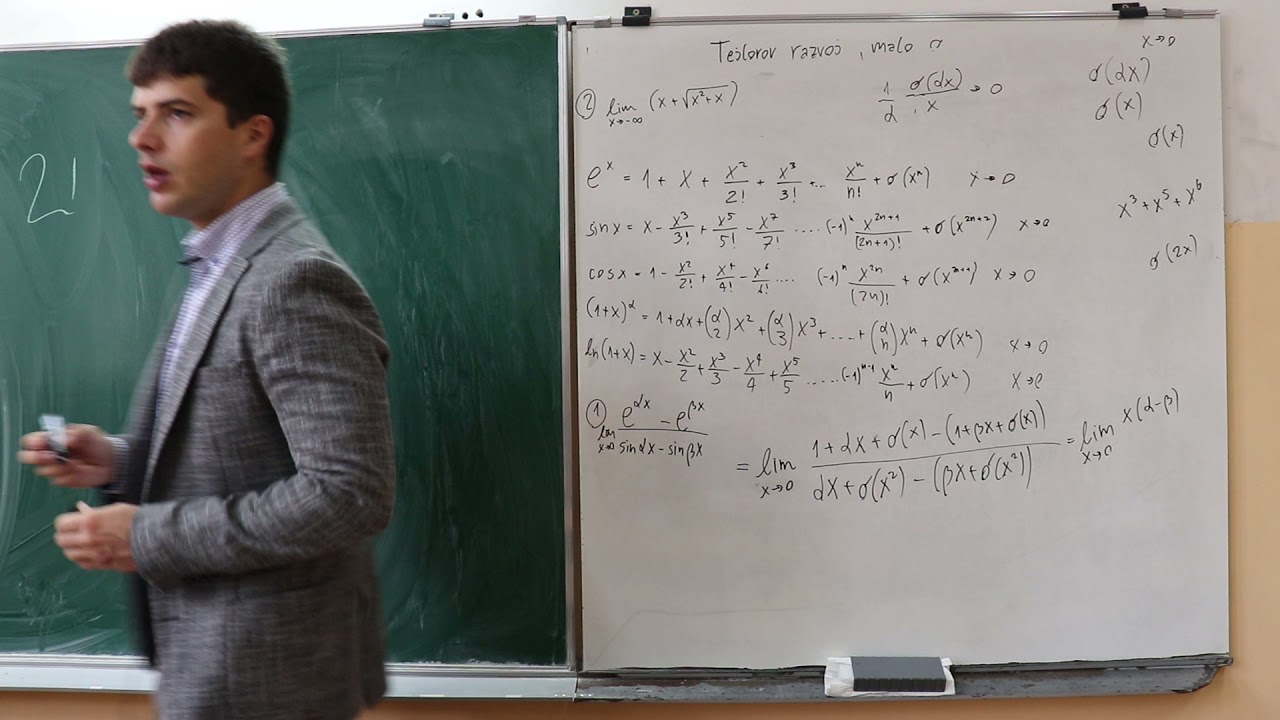 2!
Tejlorov razvoj, malo σ
x→0
② lim x→-∞ (x+√(x²+x))
1/α σ(αx)/x → 0
σ(αx)
σ(x)
σ(x)
e^x = 1 + x + x²/2! + x³/3! + ... x^n/n! + σ(x^n) x→0
x³+x⁵+x⁶
sin x = x - x³/3! + x⁵/5! - x⁷/7! .... (-1)^n x^(2n+1)/(2n+1)! + σ(x^(2n+2)) x→0
σ(2x)
cos x = 1 - x²/2! + x⁴/4! - x⁶/6! .... (-1)^n x^(2n)/(2n)! + σ(x^(2n+1)) x→0
(1+x)^α = 1+αx+(α 2)x²+(α 3)x³+....+(α n)x^n+σ(x^n) x→0
ln(1+x) = x - x²/2 + x³/3 - x⁴/4 + x⁵/5 ..... (-1)^(n-1) x^n/n + σ(x^n) x→0
① lim x→0 (e^(αx) - e^(βx))/(sin αx - sin βx)
= lim x→0 (1+αx+σ(x)-(1+βx+σ(x)))/(αx+σ(x²)-(βx+σ(x²))) = lim x→0 x(α-β)